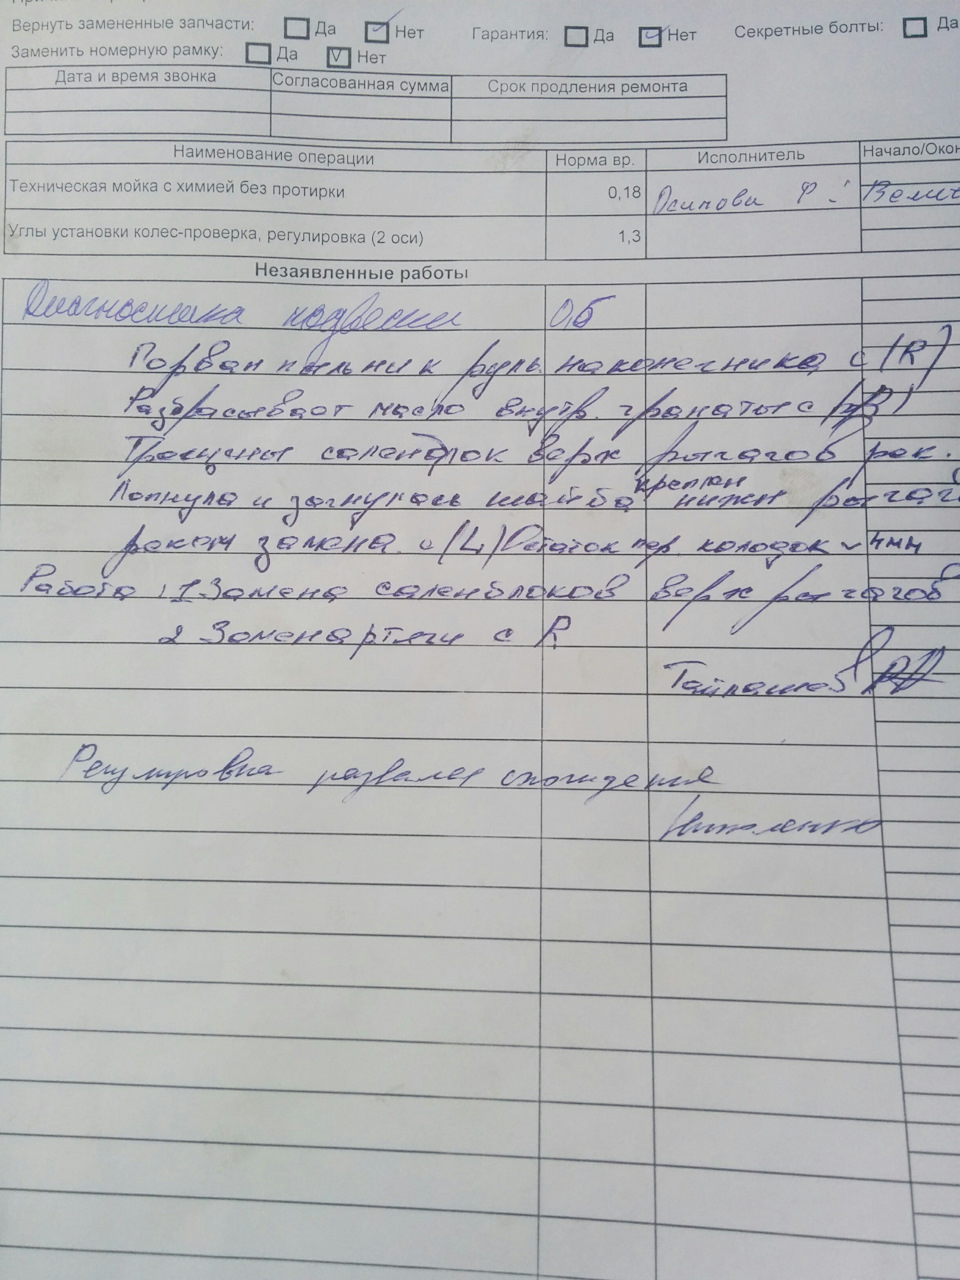 Вернуть замененные запчасти: Да Нет Гарантия: Да Нет Секретные болты: Да
Заменить номерную рамку: Да V Нет
Дата и время звонка Согласованная сумма Срок продления ремонта
Наименование операции Норма вр. Исполнитель Начало/Окон
Техническая мойка с химией без протирки 0,18 Осипова Ф
Углы установки колес-проверка, регулировка (2 оси) 1,3
Незаявленные работы
Диагностика подвески 0,6
Порван пыльник руль. наконечника с (R)
Разбрасывает масло внутр. гранаты с
Трещины саленблок верх рычагов рек.
Лопнула и загнулась шайба креплен нижн рычаг
реком замена с (L) Остаток пер. колодок ~ 4мм
Работа: 1 Замена саленблоков верх рычагов
2 Замена р тяги с R
Регулировка развала схождения